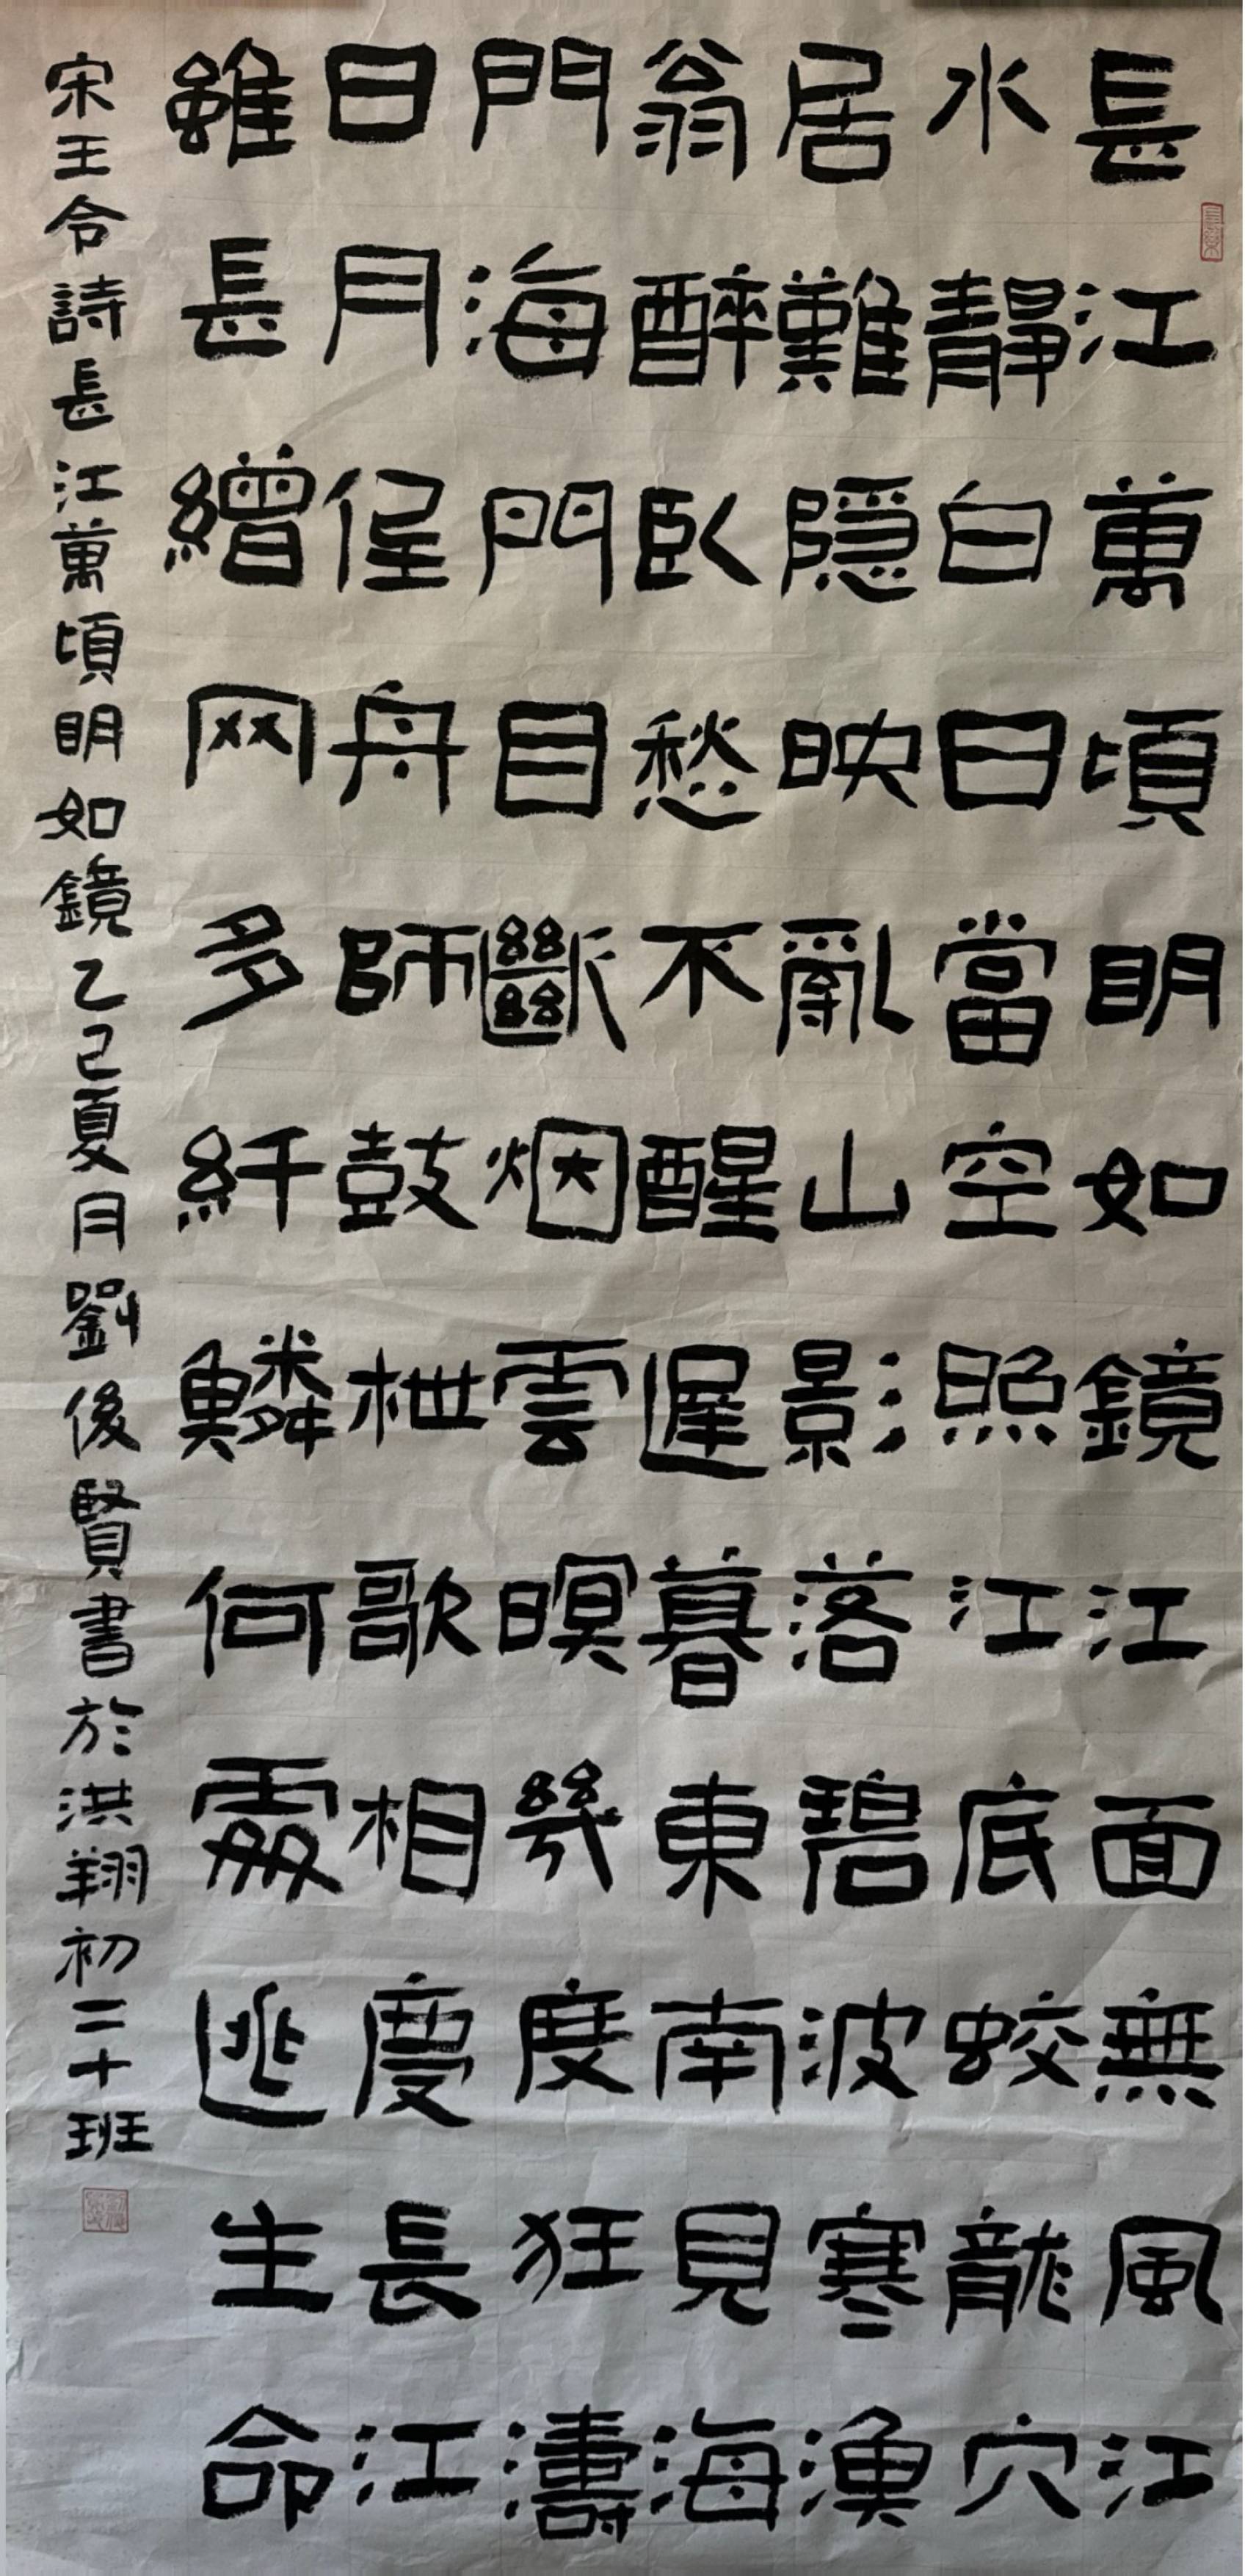 長江萬頃明如鏡江面無風江
水靜白日當空照江底蛟龍穴
居難隱映亂山影落碧波寒漁
翁醉臥愁不醒遲暮東南見海
門海門目斷烟雲暝幾度狂濤
日月侵舟師鼓枻歌相慶長江
雖長繒网多纤鱗何處逃生命
宋王令詩長江萬頃明如鏡乙巳夏月劉後賢書於洪翔初二十班